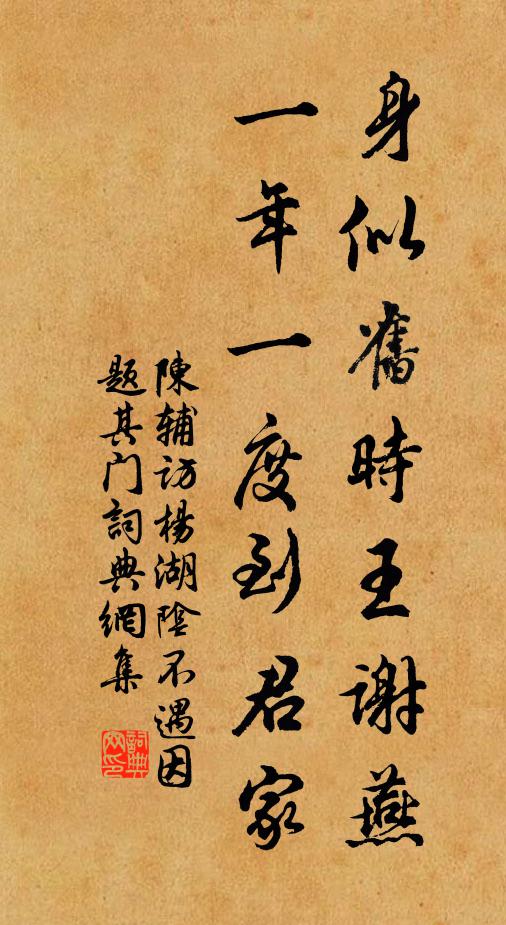 身似舊時王謝燕
一年一度到君家
陳輔訪楊湖陰不遇因
題其门詞典網集
詞典網印